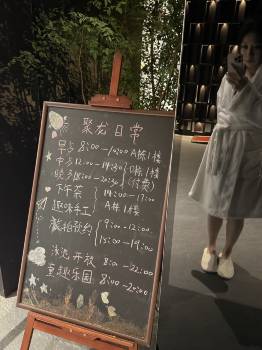 聚龙日常
早占 8:00—10:00 A栋1楼
中占 12:00—14:30 D栋1楼
晚占 18:00—20:30 (付费)
下午茶 14:00—17:00
趣味手工 A栋1楼
旅拍预约 9:00-12:00
15:00-19:00
泳池开放 8:00-22:00
童趣乐园: 8:00-20:00